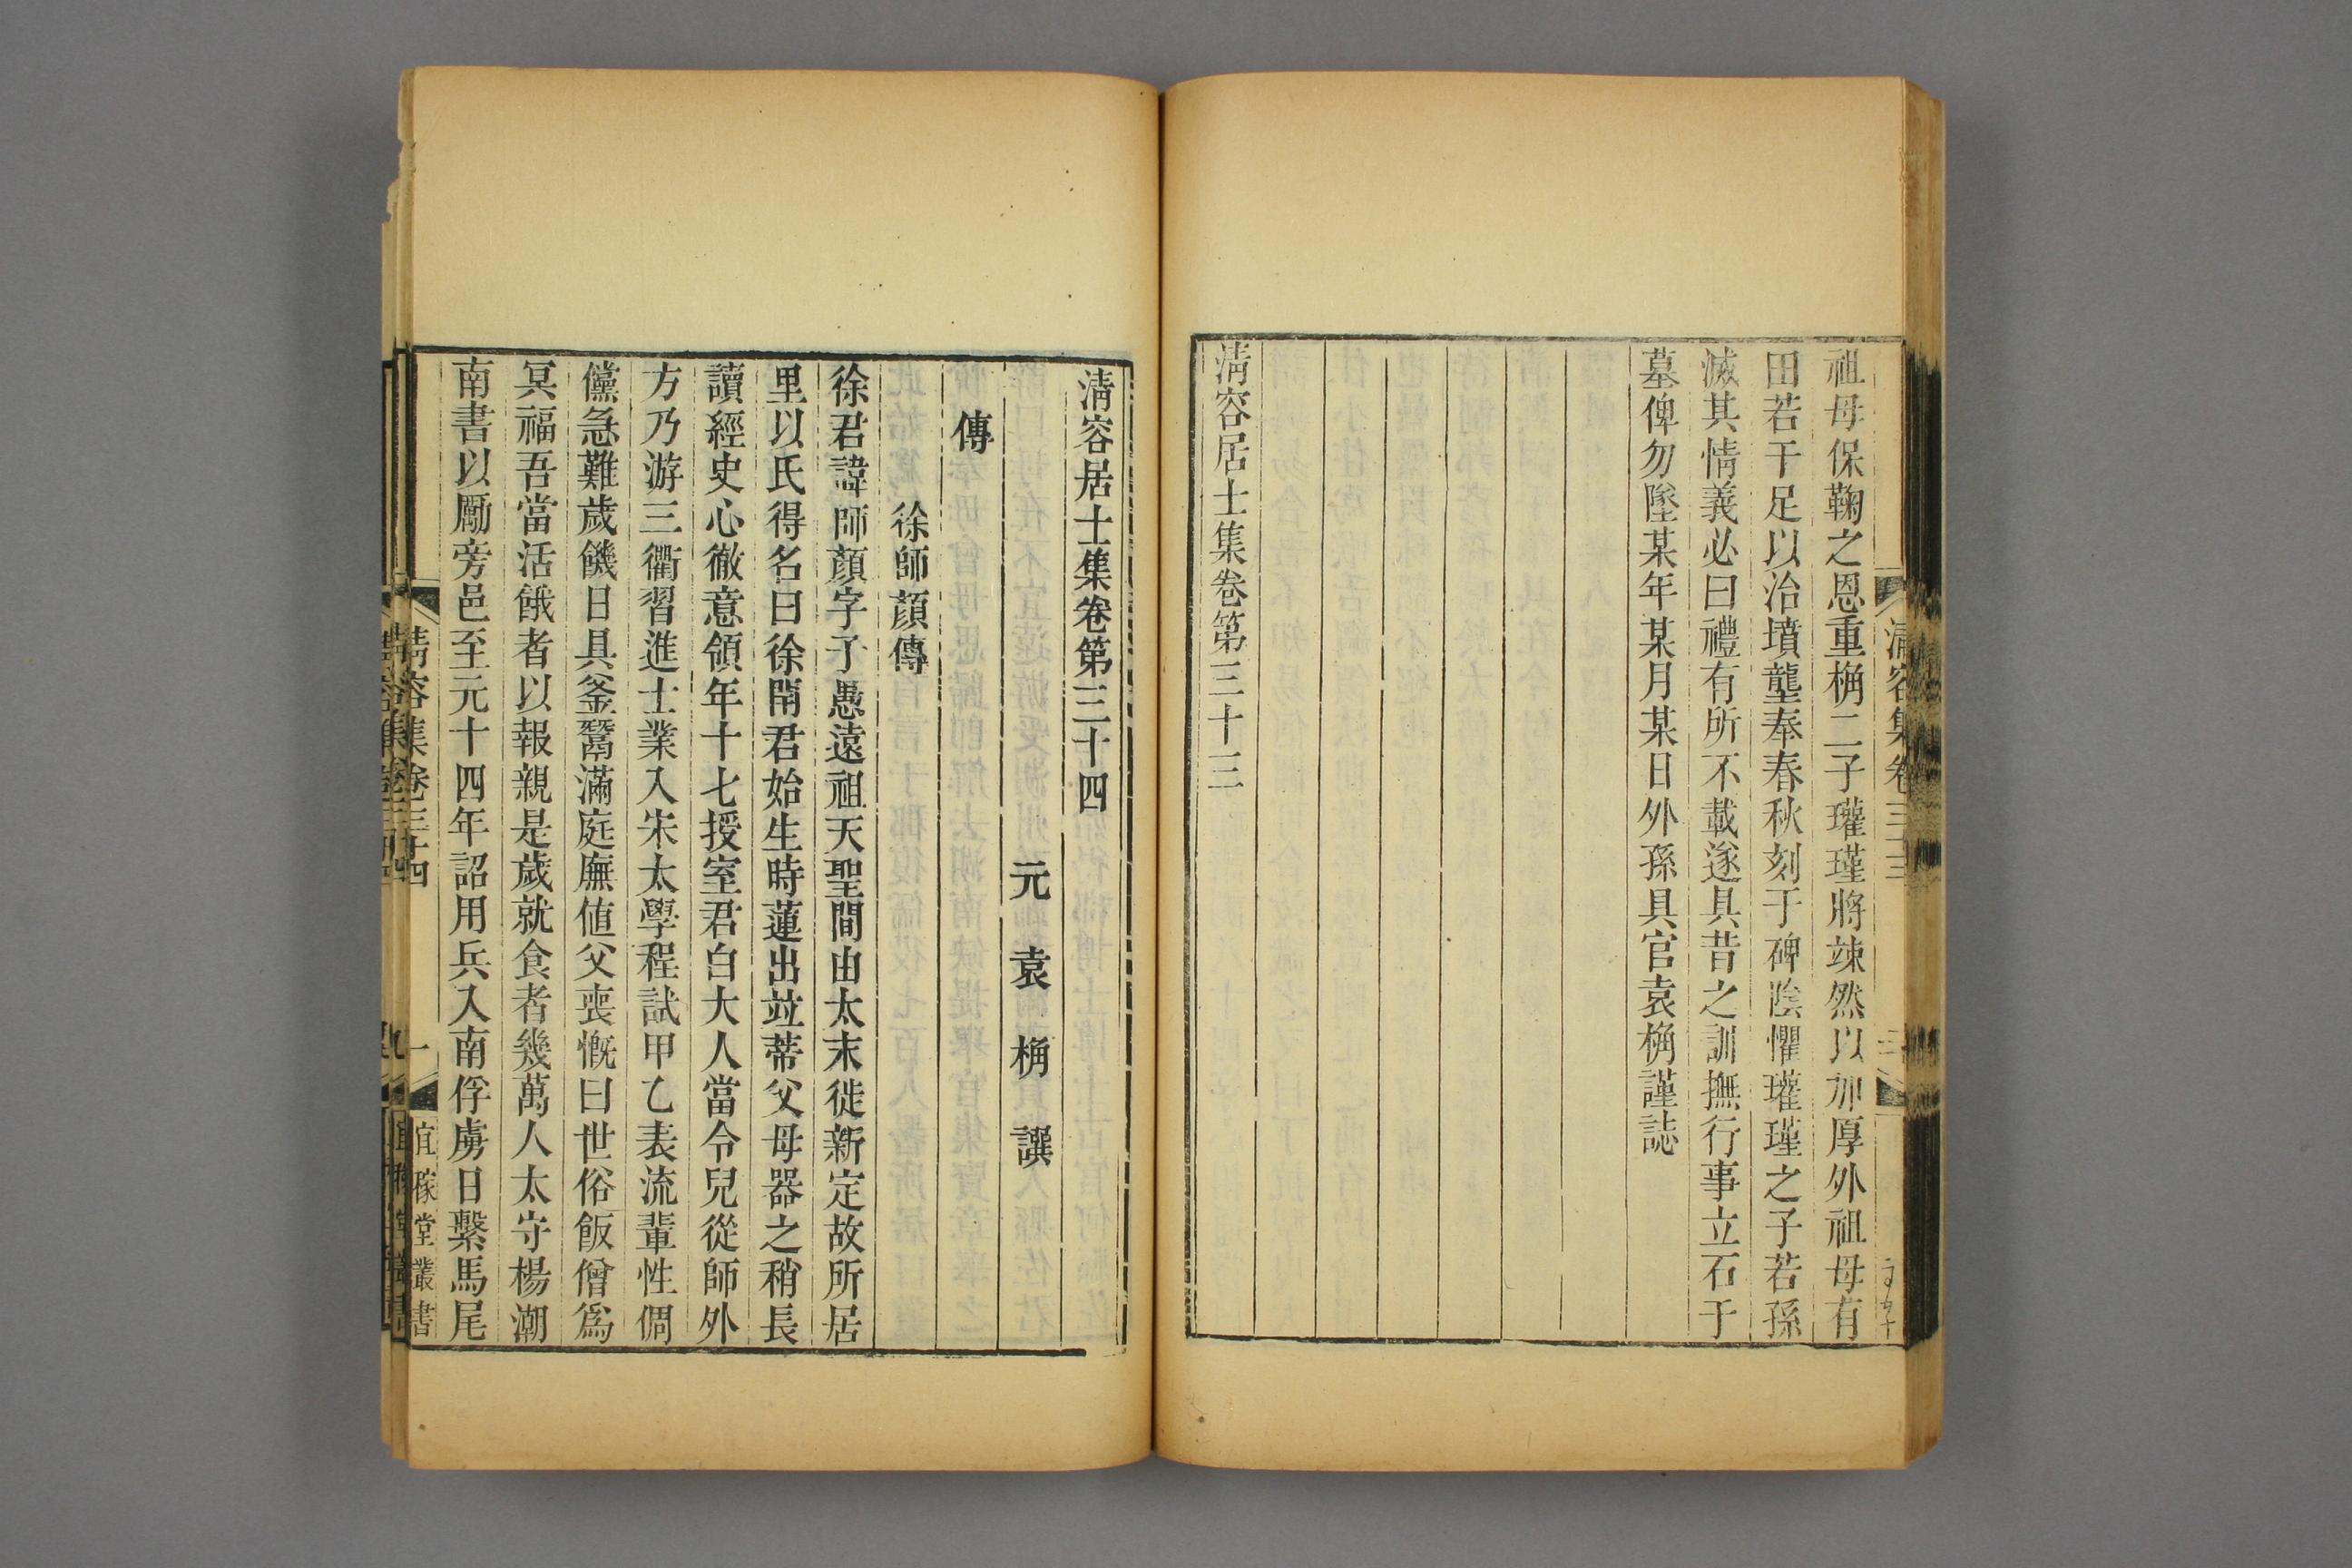 祖母保鞠之恩重桷二子瓘瑾將竦然以加厚外祖母有
田若干足以治墳壟奉春秋刻于碑陰懼瓘瑾之子若孫
滅其情義必曰禮有所不載遂具昔之訓撫行事立石于
墓俾勿墜某年某月某日外孫具官袁桷謹誌
淸容居士集卷第三十三
淸容居士集卷第三十四
元袁桷譔
傳
徐師顏傳
徐君諱師顏字子愚遠祖天聖間由太末徙新定故所居
里以氏得名曰徐閈君始生時蓮出竝蒂父母器之稍長
讀經史心徹意領年十七授室君白大人當令兒從師外
方乃游三衢習進士業入宋太學程試甲乙表流輩性倜
儻急難歲饑日具釜鬵滿庭廡値父喪慨曰世俗飯僧爲
冥福吾當活餓者以報親是歲就食者幾萬人太守楊潮
南書以勵旁邑至元十四年詔用兵入南俘虜日繫馬尾
淸容集卷三十四
一
宜稼堂叢書